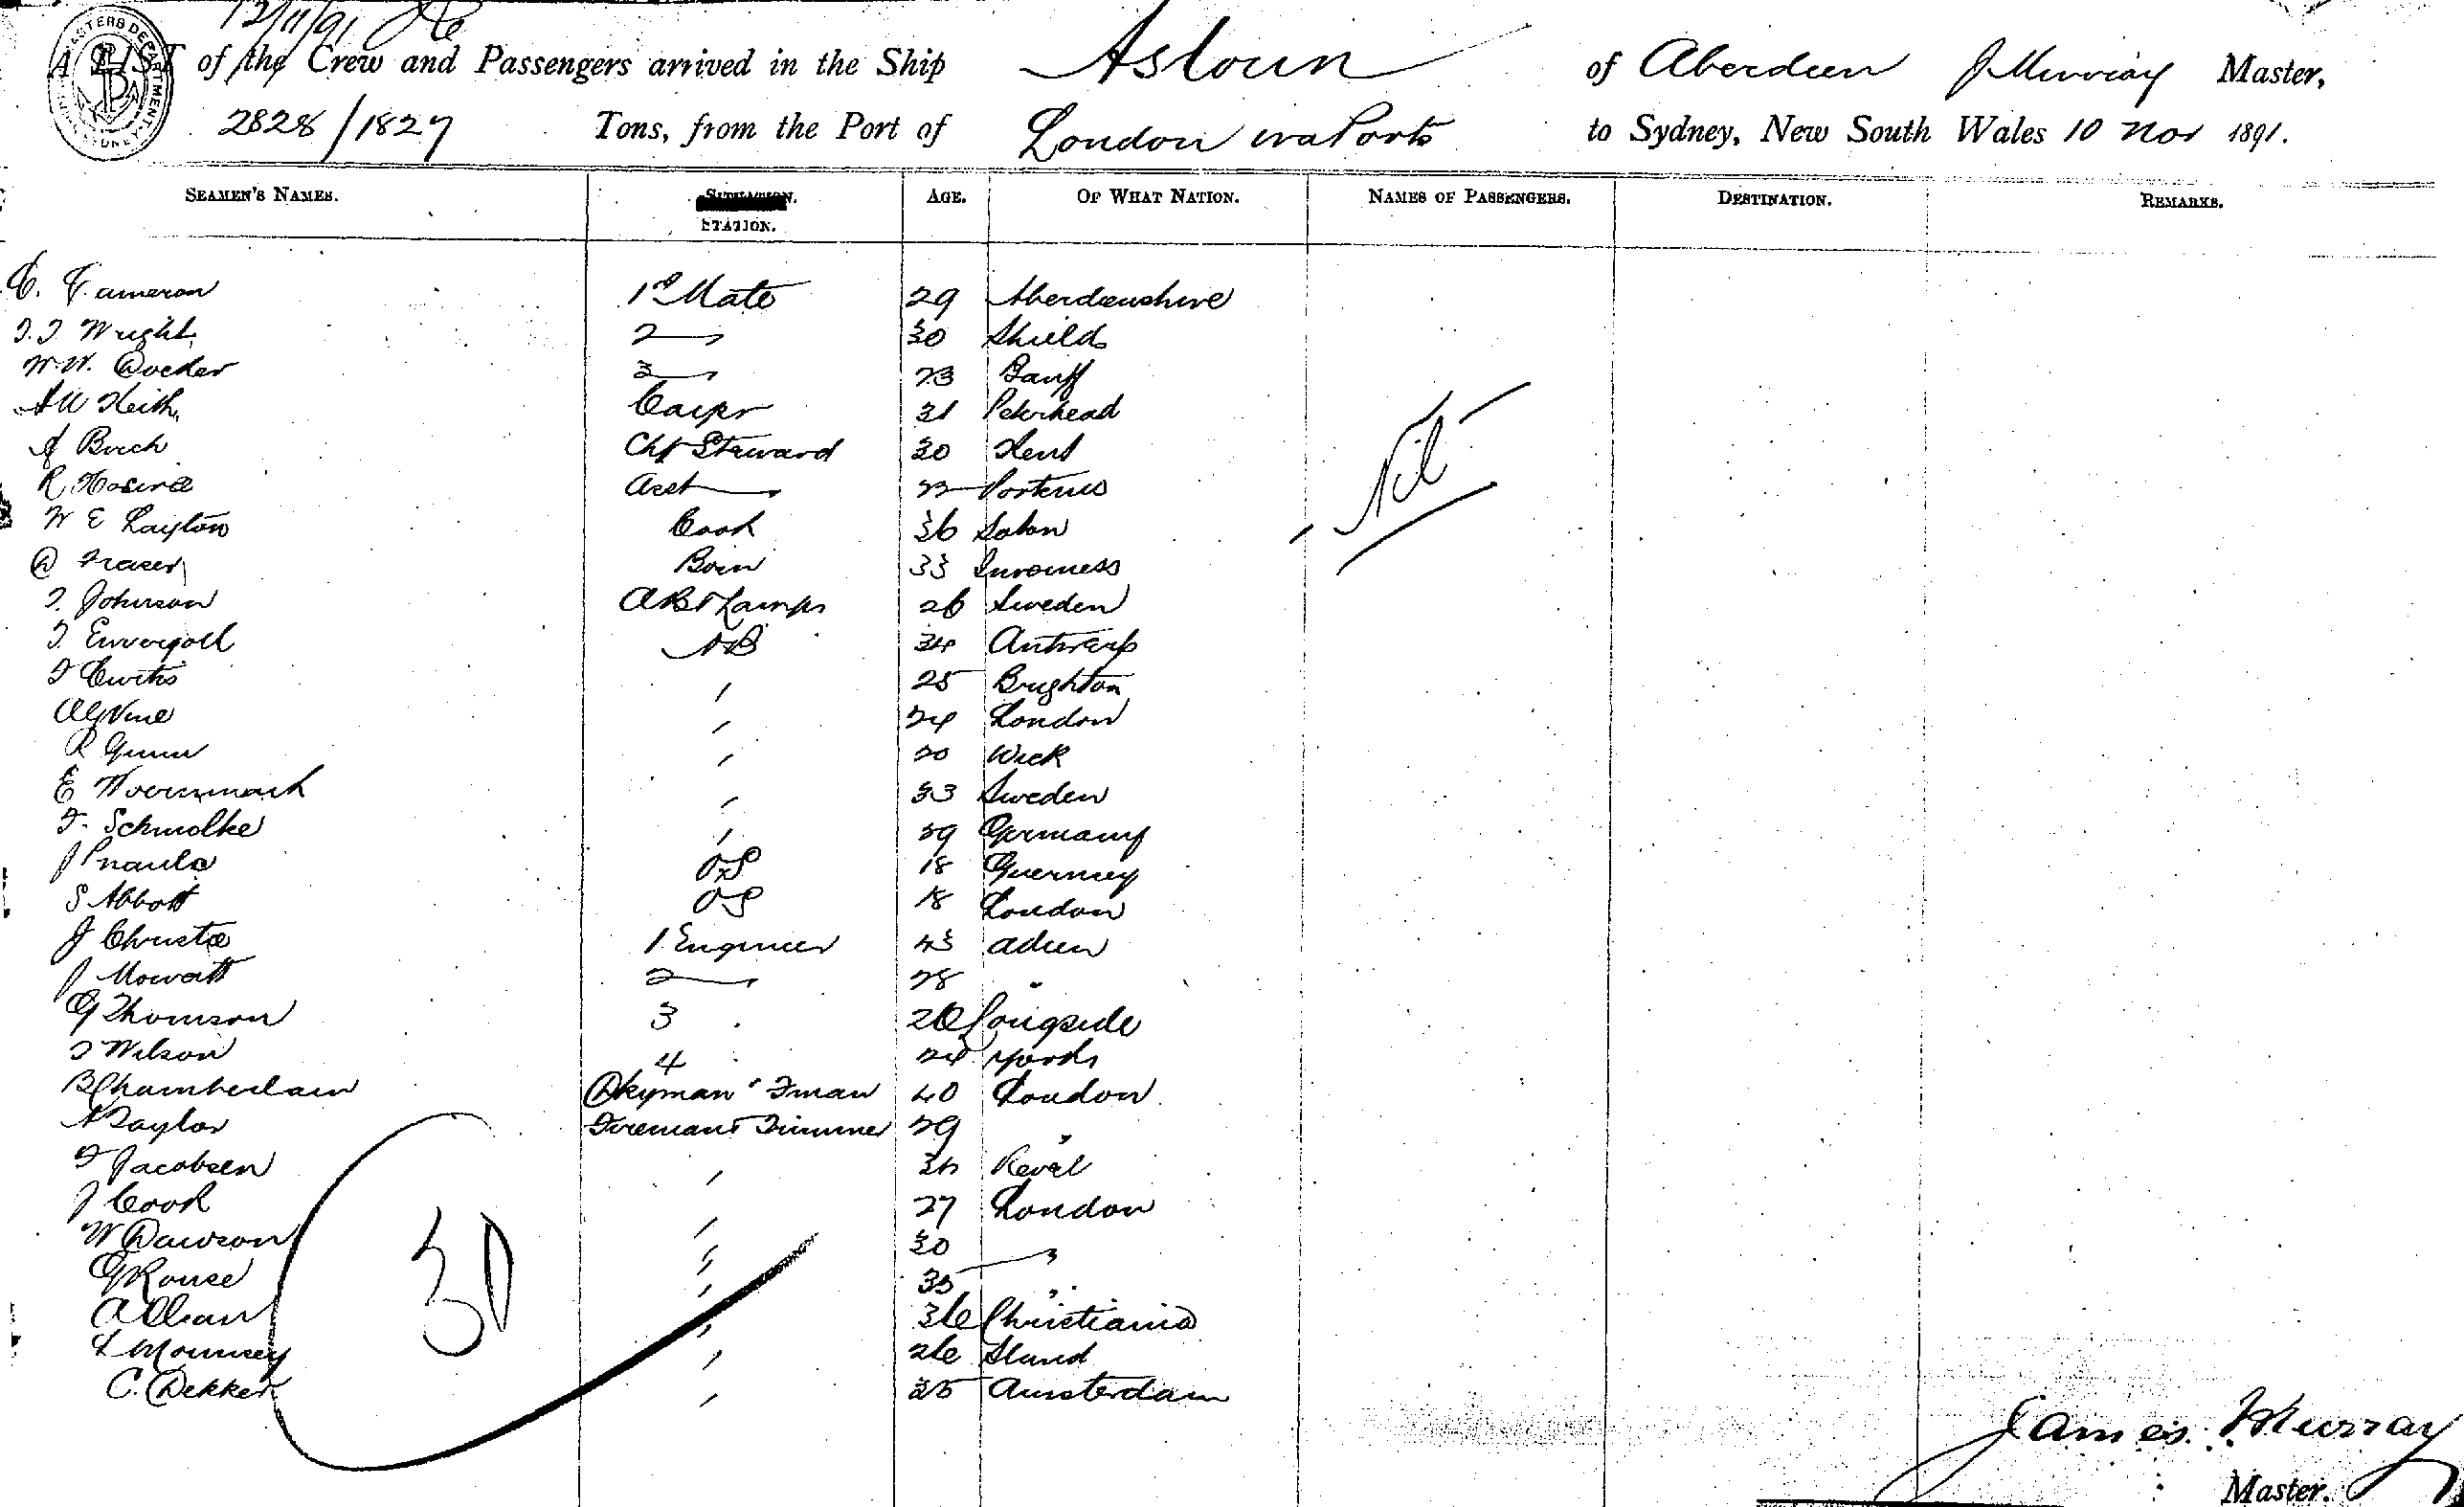 12/11/91
A LIST of the Crew and Passengers arrived in the Ship Asloun of Aberdeen J Murray Master,
2828/1827 Tons, from the Port of London via Ports to Sydney, New South Wales 10 Nov 1891.
SEAMEN'S NAMES. STATION. AGE. OF WHAT NATION. NAMES OF PASSENGERS. DESTINATION. REMARKS.
C. Cameron 1st Mate 29 Aberdeenshire
T. T Wright 2 30 Shields
W. W. Docker 3 23 Banff
A W Keith Carpr 31 Peterhead
A Birch Chf Steward 30 Kent
R Asst 22
W E Layton Cook 36
D Fraser Bosn 33 Inverness
T. Johnson AB & Lamps 26 Sweden
T. AB 34 Antwerp
T Curtis " 25 Brighton
A G Vine " 24 London
R Gunn " 20 Wick
E " 33 Sweden
F. Schmolke " 29 Germany
J OS 18 Guernsey
S Abbott OS 18 London
J Christie 1 Engineer 43 Adeen
J Mowatt 2 28 "
G Thomson 3 26 Longside
T Wilson 4 24
B Chamberlain Dkyman & Fman 40 London
A Taylor Fireman & Trimmer 29 "
F Jacobsen " Revel
J Cook " 27 London
W Dawson " 30 "
G Rouse " 35 "
A " 36 Christiania
Mounsey " 26
C. Dekker " 25 Amsterdam
Nil
30
James Murray
Master.